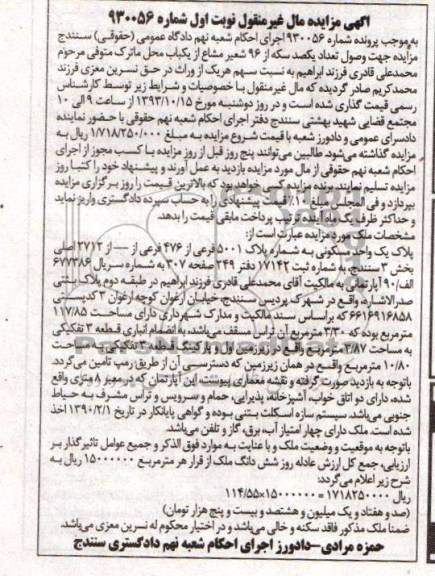 آگهی مزایده مال غیرمنقول نوبت اول شماره ۹۳۰۰۵۶
به موجب پرونده شماره ۹۳۰۰۵۶ اجرای احکام شعبه نهم دادگاه عمومی (حقوقی) سنندج
مزایده جهت وصول تعداد یکصد سکه از ۹۶ شعیر مشاع از یکباب محل ماترک متوفی مرحوم
محمدعلی قادری فرزند ابراهیم به نسبت سهم هریک از وراث در حق نسرین معزی فرزند
محمدکریم صادر گردیده که مال غیرمنقول با خصوصیات و شرایط زیر توسط کارشناس
رسمی قیمت گذاری شده است و در روز دوشنبه مورخ ۱۳۹۳/۱۰/۱۵ از ساعت ۹ الی ۱۰
مجتمع قضایی شهید بهشتی سنندج دفتر اجرای احکام شعبه نهم حقوقی با حضور نماینده
دادسرای عمومی و دادورز شعبه با قیمت شروع مزایده به مبلغ ۱/۷۱۸/۲۵۰/۰۰۰ ریال به
مزایده گذاشته می‌شود. طالبین می‌توانند پنج روز قبل از روز مزایده با کسب مجوز از اجرای
احکام شعبه نهم حقوقی از مال مورد مزایده بازدید به عمل آورند و پیشنهاد خود را کتبا روز
مزایده تسلیم نمایند. برنده مزایده کسی خواهد بود که بالاترین قیمت را روز برگزاری مزایده
بپردازد و فی المجلس مبلغ ۱۰٪ قیمت پیشنهادی را به حساب سپرده دادگستری واریز نماید
و حداکثر ظرف یک ماه آینده ترتیب پرداخت مابقی قیمت را بدهد.
مشخصات ملک مورد مزایده عبارت است از:
پلاک یک واحد مسکونی به شماره پلاک ۵۰۰۱ فرعی از ۴۷۶ فرعی از — از ۲۷۱۲ اصلی
بخش ۳ سنندج، به شماره ثبت ۱۷۱۴۲ دفتر ۲۴۹ صفحه ۳۰۷ به شماره سریال ۶۷۷۳۸۶
الف/۹۰ آپارتمانی به مالکیت آقای محمدعلی قادری فرزند ابراهیم در طبقه دوم پلاک ثبتی
صدرالاشاره، واقع در شهرک پردیس سنندج، خیابان ارغوان کوچه ارغوان ۳ کدپستی
۶۶۱۶۹۱۶۸۵۸ که براساس سند مالکیت و مدارک شهرداری دارای مساحت ۱۱۷/۸۵
مترمربع بوده که ۳/۳۰ مترمربع آن تراس مسقف می‌باشد، به انضمام انباری قطعه ۳ تفکیکی
به مساحت ۳/۸۷ مترمربع واقع در زیرزمین اول و پارکینگ قطعه ۳ تفکیکی به مساحت
۱۰/۸۰ مترمربع واقع در همان زیرزمین که دسترسی آن از طریق رمپ تامین می‌گردد.
باتوجه به بازدید صورت گرفته و نقشه معماری پیوست، این آپارتمان که در معبر ۸ متری واقع
شده، دارای دو اتاق خواب، آشپزخانه، پذیرایی، حمام و سرویس و تراس مشرف به حیاط
جنوبی می‌باشد. سیستم سازه اسکلت بتنی بوده و گواهی پایانکار در تاریخ ۱۳۹۰/۲/۱ اخذ
شده است. ملک دارای چهار امتیاز آب، برق، گاز و تلفن می‌باشد.
باتوجه به موقعیت و وضعیت ملک و با عنایت به موارد فوق الذکر و جمیع عوامل تاثیرگذار بر
ارزیابی، جمع کل ارزش عادله روز شش دانگ ملک از قرار هر مترمربع ۱۵۰۰۰۰۰۰ ریال به
شرح زیر اعلام می‌گردد:
ریال ۱۷۱۸۲۵۰۰۰۰ = ۱۵۰۰۰۰۰۰×۱۱۴/۵۵
(صد و هفتاد و یک میلیون و هشتصد و بیست و پنج هزار تومان)
ضمنا ملک مذکور فاقد سکنه و خالی می‌باشد و در اختیار محکوم له نسرین معزی می‌باشد.
حمزه مرادی-دادورز اجرای احکام شعبه نهم دادگستری سنندج